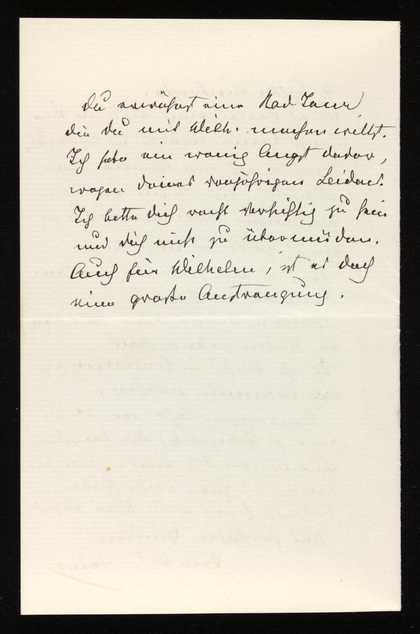 Du erwähnst eine Rad Tour
die Du mit Wilh. machen willst.
Ich habe ein wenig Angst davor,
wegen deines vorjährigen Leidens.
Ich bitte Dich recht vorsichtig zu sein
und Dich nicht zu übermüden.
Auch für Wilhelm, ist es doch
eine große Anstrengung.